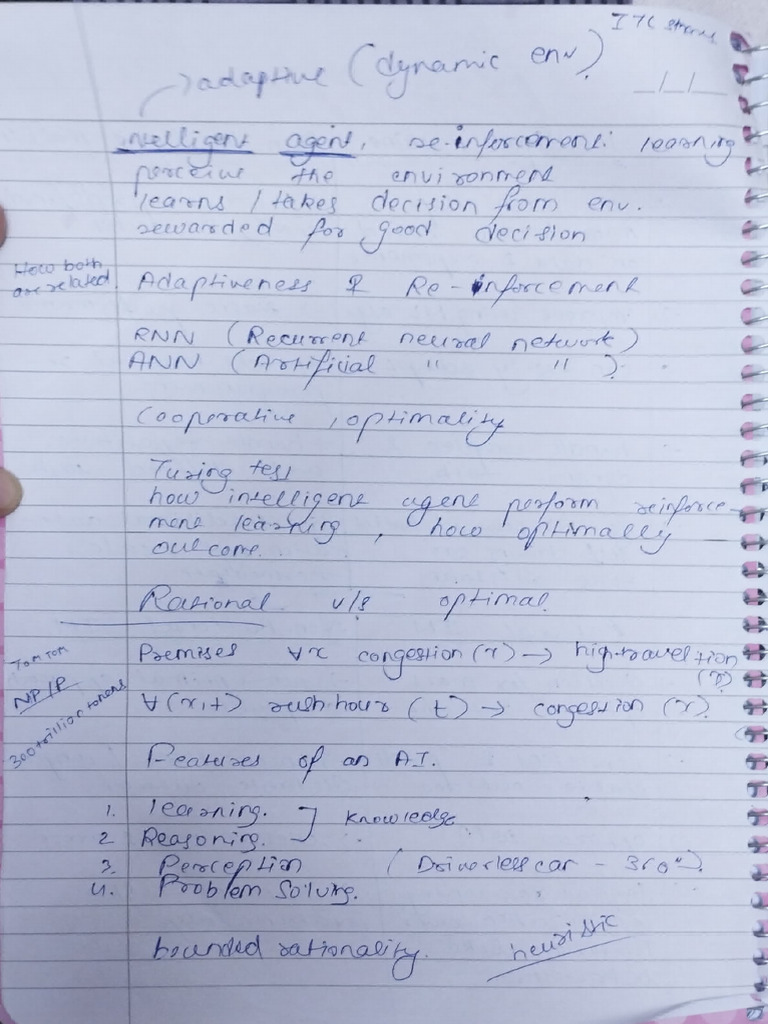 ITC
adaptive (dynamic env)
Intelligent agent, re-inforcement learning
perceive the environment
learns / takes decision from env.
rewarded for good decision
How both
are related
Adaptiveness & Re-inforcement
RNN (Recurrent neural network)
ANN (Artificial " " )
Cooperative, optimality
Turing test
how intelligent agent perform reinforce-
ment learning, how optimally
outcome.
Rational v/s optimal
Tom Tom
Premises ∀x congestion (x) → high-travel
(x)
NP/P
∀(x,t) rush hour (t) → congestion (x).
300 trillion tokens
Features of an A.I.
1. learning. ] knowledge
2 Reasoning.
3. Perception (Driverless car - 360°)
4. Problem Solving.
bounded rationality. heuristic